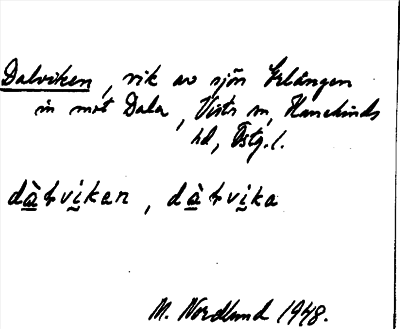 Dalviken, vik av sjön Erlången
in mot Dala, Vists sn, Hanekinds
hd, Östg. l.
dàɫvikan, dàɫvika
M. Nordlund 1948.